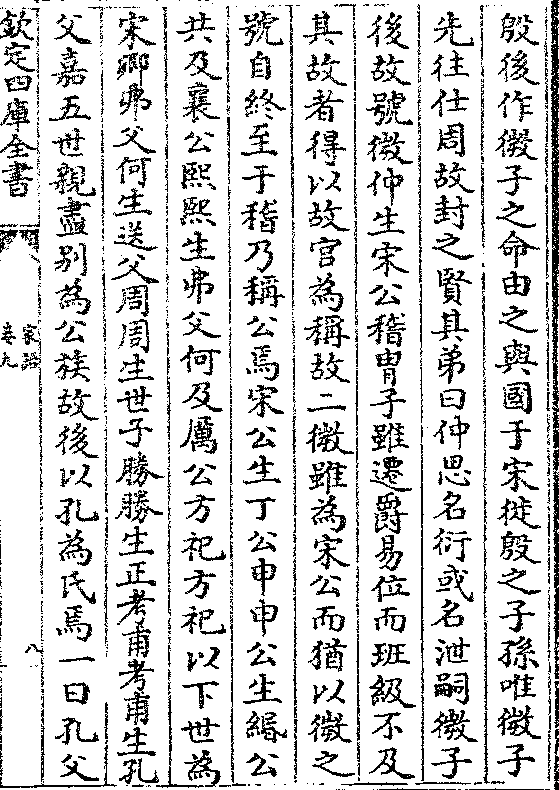 殷後作微子之命由之與國于宋徙殷之子孫唯微子
先往仕周故封之賢其弟曰仲思名衍或名泄嗣微子
後故號微仲生宋公稽胄子雖遷爵易位而班級不及
其故者得以故官為稱故二微雖為宋公而猶以微之
號自終至于稽乃稱公焉宋公生丁公申申公生緡公
共及襄公熙熙生弗父何及厲公方祀方祀以下世為
宋卿弗父何生送父周周生世子勝勝生正考甫考甫生孔
父嘉五世親盡别為公族故後以孔為氏焉一曰孔父
欽定四庫全書
家語
卷九
八